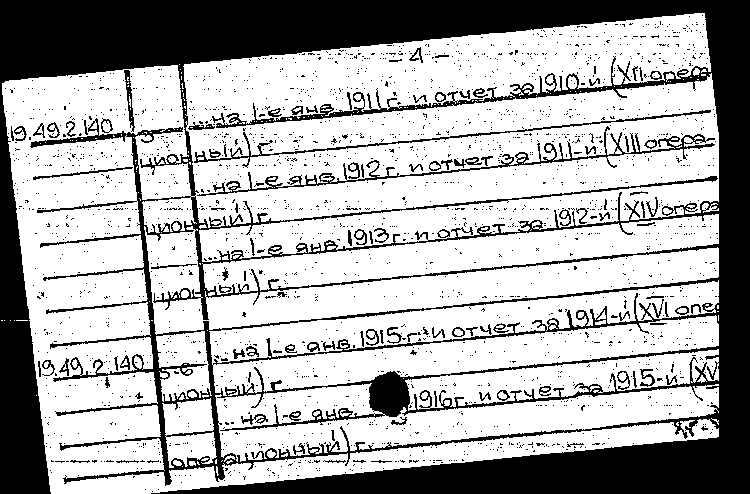 – 4 –
19.49.2.140 1-3 ...на 1-е янв. 1911 г. и отчет за 1910-й (XII опера
ционный) г.
...на 1-е янв. 1912 г. и отчет за 1911-й (XIII опера-
ционный) г.
...на 1-е янв. 1913 г. и отчет за 1912-й (XIV опера
ционный) г.
19.49.2.140 5-6 ...на 1-е янв. 1915 г. и отчет за 1914-й (XVI опер
ционный) г.
...на 1-е янв. 1916 г. и отчет за 1915-й (XV
операционный) г.